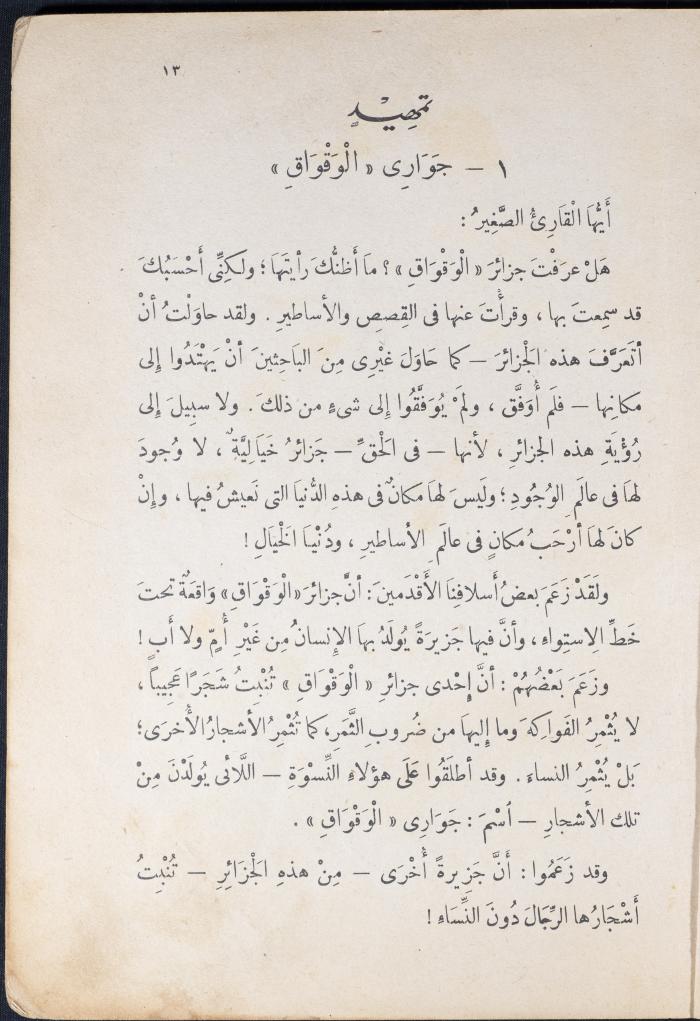 ١٣
تمهيد
١ – جَوَارِى «الْوَقْوَاقِ»
أَيُّهَا الْقَارِئُ الصَّغِيرُ :
هَلْ عرَفْتَ جزائرَ «الْوَقْوَاقِ» ؟ ما أَظنُّكَ رأيتَهَا ؛ ولكِنِّى أَحْسَبُكَ
قد سمِعتَ بها ، وقرأْتَ عنها فى القِصصِ والأساطيرِ . ولقد حاوَلْتُ أنْ
أتَعَرَّفَ هذه الْجزائرَ – كما حَاوَلَ غَيْرِى مِنَ الباَحِثِينَ أنْ يَهْتَدُوا إلى
مكانِها – فلَم أُوَفَّق ، ولمْ يُوَفَّقُوا إلى شىءٍ من ذلكَ . ولا سبيلَ إلى
رُؤْيَةِ هذه الجزائرِ ، لأنها – فى الْحَقِّ – جَزائرُ خَياَلِيَّةٌ ، لا وُجودَ
لهَا فى عالَمِ الوُجُودِ ؛ ولَيْسَ لهَا مكانٌ فى هذهِ الدُّنيَا التى نَعيشُ فيها ، وإِنْ
كانَ لهَا أرْحَبُ مكانٍ فى عالَمِ الأساطيرِ ، ودُنْيَا الْخَيالِ !
ولَقَدْ زَعَمَ بعضُ أسلافِنَا الأَقْدَمينَ : أنَّ جزائرَ «الْوَقْوَاقِ» وَاقعَةٌ تحتَ
خَطِّ الِاستِواءِ ، وأنَّ فيها جَزِيرَةً يُولَدُ بهَا الإِنسانُ مِن غَيْرِ أُمٍّ ولا أَبٍ !
وزَعَمَ بَعْضُهُمْ : أنَّ إِحْدى جزائرِ «الْوَقْوَاقِ» تُنْبِتُ شَجَرًا عَجِيباً ،
لا يُثْمِرُ الفَواكِهَ وما إِليهَا من ضُروبِ الثَّمَرِ ، كما تُثْمِرُ الأشجارُ الأُخرَى ؛
بَلْ يُثْمِرُ النساءَ . وقد أطلَقُوا عَلَى هؤلاءِ النِّسْوَةِ – اللَّائى يُولَدْنَ مِنْ
تلك الأشجارِ – ٱسْمَ : جَوَارِى «الْوَقْوَاقِ» .
وقد زَعَمُوا : أَنَّ جَزِيرةً أُخْرَى – مِنْ هذهِ الْجَزَائِرِ – تُنْبِتُ
أَشْجَارُها الرِّجَالَ دُونَ النِّسَاءِ !